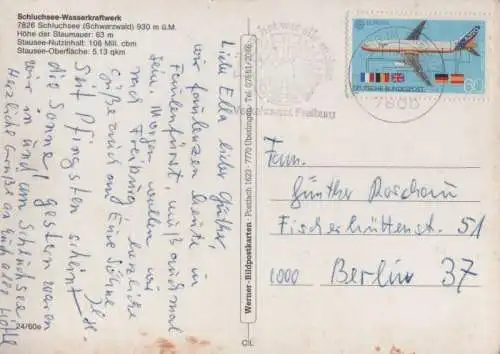 Schluchsee-Wasserkraftwerk
7826 Schluchsee (Schwarzwald) 930 m ü.M.
Höhe der Staumauer: 63 m
Stausee-Nutzinhalt: 108 Mill. cbm
Stausee-Oberfläche: 5,13 qkm
Liebe Ella, lieber Günther,
wir faulenzen heute in
muß auch mal
sein. Morgen wollen wir
nach Freiburg, herzliche
Grüße auch an Eure Söhne
Seit Pfingsten scheint
die Sonne, gestern waren
wir in und um Schluchsee
Herzliche Grüße an Euch alle
24/60e
Werner-Bildpostkarten · Postfach 1623 · 7770 Überlingen · Tel. 07551/2006
EUROPA
DEUTSCHE BUNDESPOST
60
7800
Freiburg
Fam.
Günther Roschau
Fischerhüttenstr. 51
1000 Berlin 37